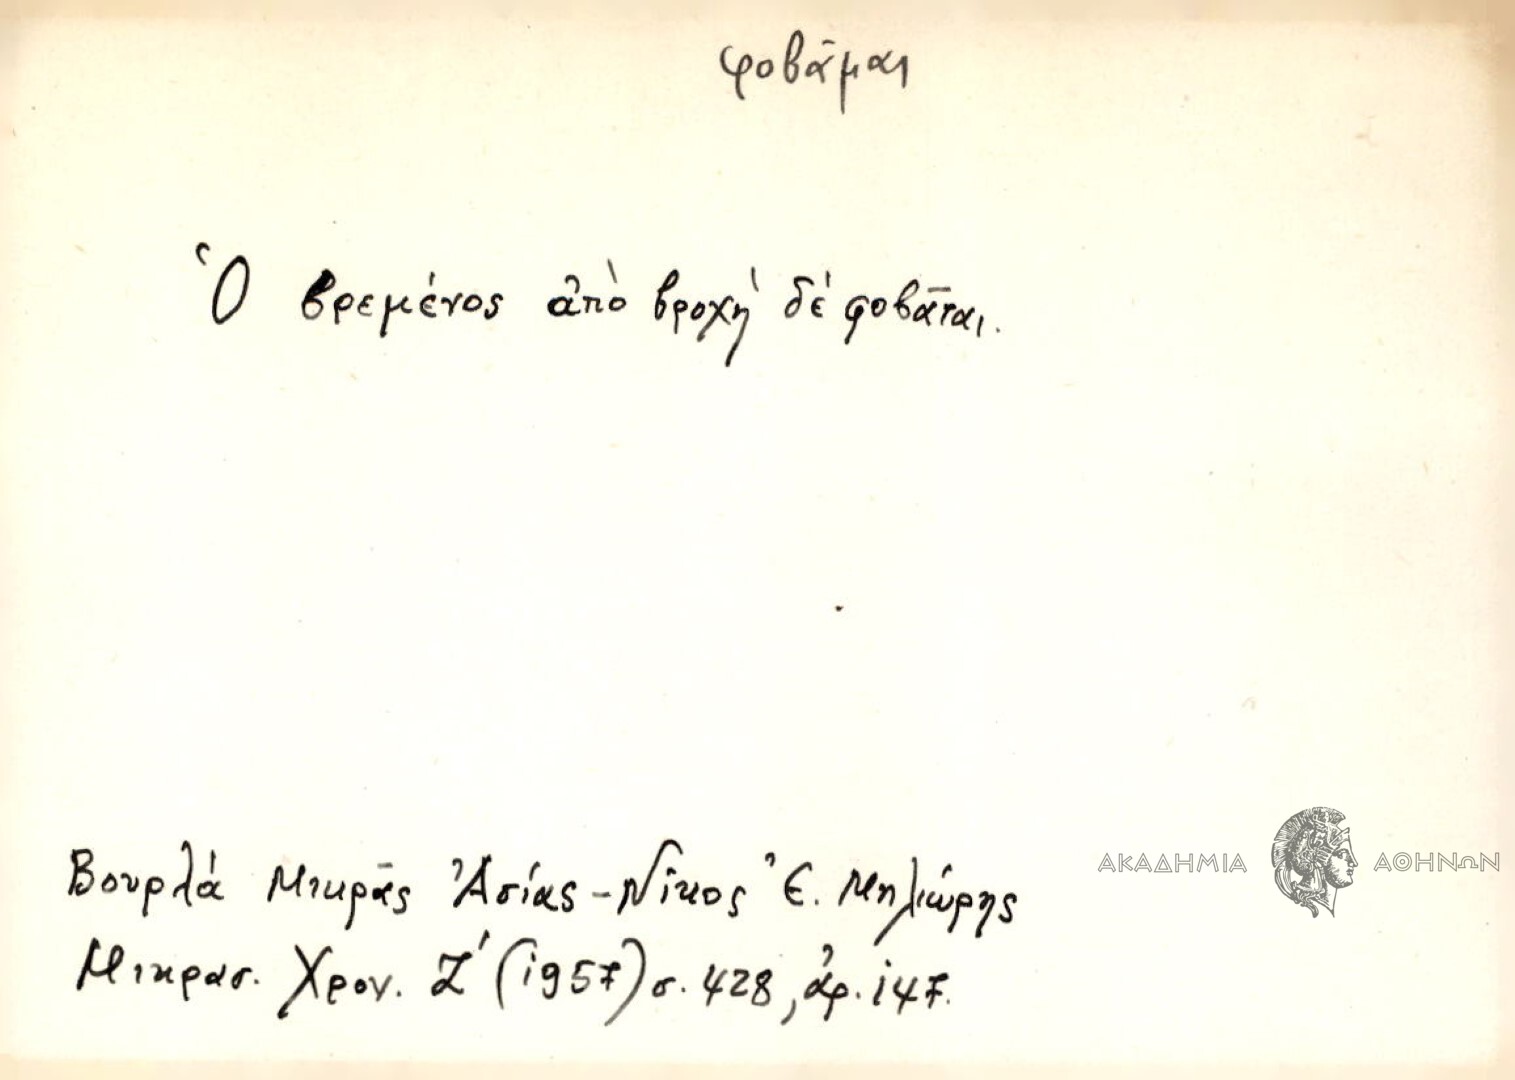 φοβᾶμαι
Ὁ βρεμένος ἀπὸ βροχὴ δέ φοβᾶται.
ΑΚΑΔΗΜΙΑ ΑΘΗΝΩΝ
Βουρλά Μικρᾶς Ἀσίας - Νῖκος Ἐ. Μηλιώρης
Μικρασ. Χρον. Ζ΄ (1957) σ. 428, ἀρ. 147.